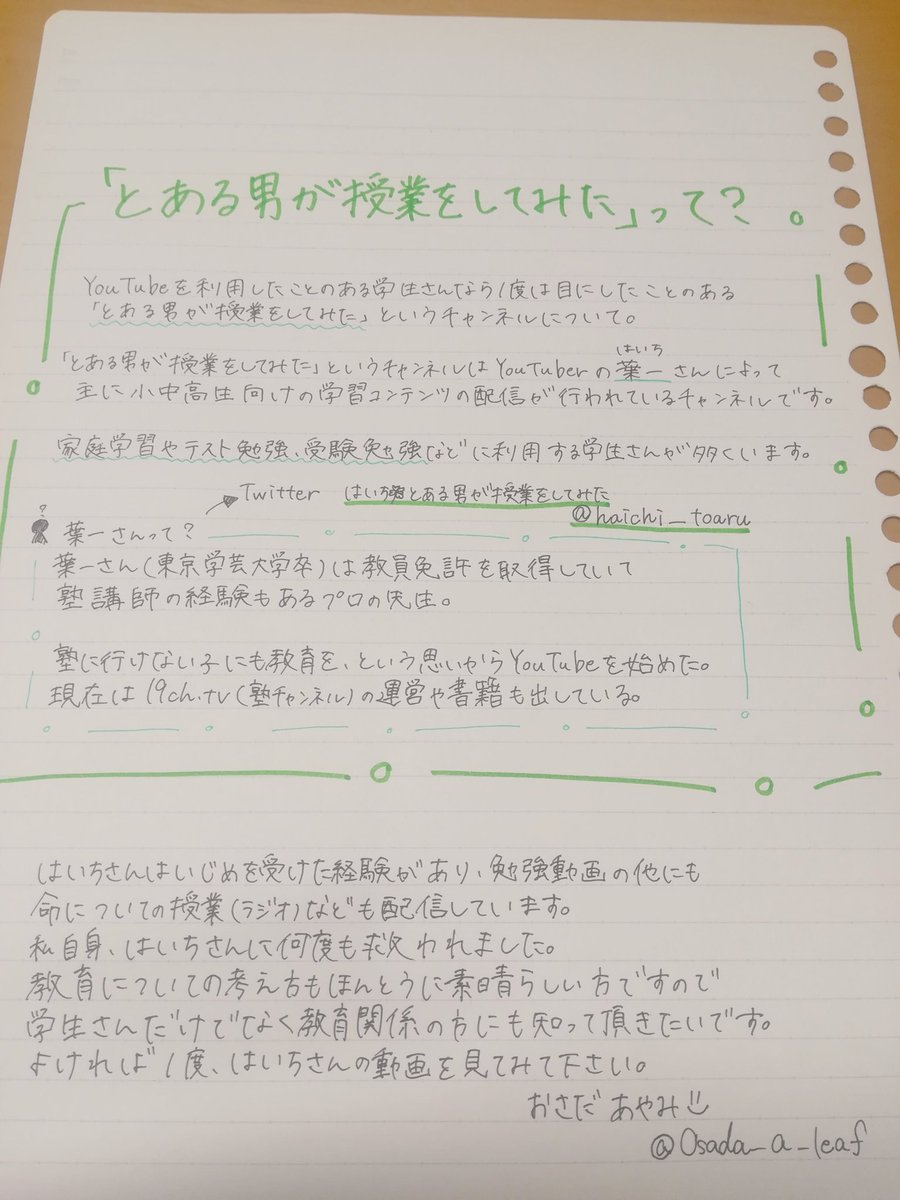 「とある男が授業をしてみた」って?
YouTubeを利用したことのある学生さんなら1度は目にしたことのある
「とある男が授業をしてみた」というチャンネルについて。
はいち
「とある男が授業をしてみた」というチャンネルはYouTuberの葉一さんによって
主に小中高生向けの学習コンテンツの配信が行われているチャンネルです。
家庭学習やテスト勉強、受験勉強などに利用する学生さんが多くいます。
Twitter はいち とある男が授業をしてみた
@haichi_toaru
?
葉一さんって?
葉一さん(東京学芸大学卒)は教員免許を取得していて
塾講師の経験もあるプロの先生。
塾に行けない子にも教育を、という思いからYouTubeを始めた。
現在は19ch.tv(塾チャンネル)の運営や書籍も出している。
はいちさんはいじめを受けた経験があり、勉強動画の他にも
命についての授業(ラジオ)なども配信しています。
私自身、はいちさんに何度も救われました。
教育についての考え方もほんとうに素晴らしい方ですので
学生さんだけでなく教育関係の方にも知って頂きたいです。
よければ1度、はいちさんの動画を見てみて下さい。
おさだ あやみ
@Osada_a_leaf